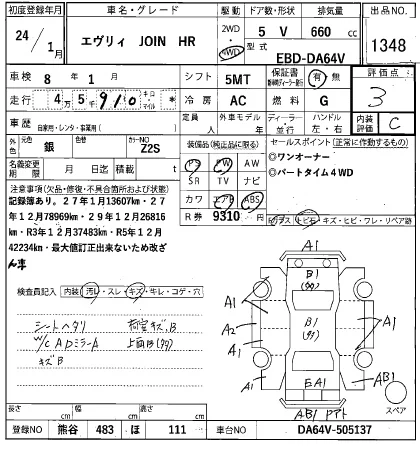 初度登録年月 車名・グレード 駆動 ドア数・形状 排気量 出品NO
24/1月 エヴリィ JOIN HR 2WD・4WD 5 V 660cc 1348
型式 EBD-DA64V
車検 8年1月 シフト 5MT 保証書 有 無 評価点
走行 4万5千910 キロ・マイル * 冷房 AC 燃料 G 3
車歴 自家用・レンタ・事業用( ) 定員 人 外車モデル 年 ディーラー・並行 ハンドル 左・右 内装評価 C
外色 元色 銀 カラーNO Z2S
名義変更期限 月 日迄 積載量 t
装備品(純正品に限る)
PS PW AW
SR TV ナビ
カワ エアB ABS
R券 9310
セールスポイント(正常に作動するもの)
◎ワンオーナー
◎パートタイム4WD
注意事項(欠品・修復・不具合箇所および状態)
記録簿あり。27年1月13607km・27
年12月78969km・29年12月26816
km・R3年12月37483km・R5年12月
42234km・最大値訂正出来ないため改ざ
ん車
Fガラス トビ石・キズ・ヒビ・ワレ・リペア跡
検査員記入 内装 汚レ・スレ・キズ・キレ・コゲ・穴
シートヘタリ 荷室キズB
W/C ADミラーA 上面B(タタ)
キズB
A1
B1
A1
A1
A2
A1
B1
A1
A1
EA1
AB1
AB1
スペア
長さ cm 幅 cm 高さ cm
登録NO 熊谷 483 ほ 111 車台NO DA64V-505137